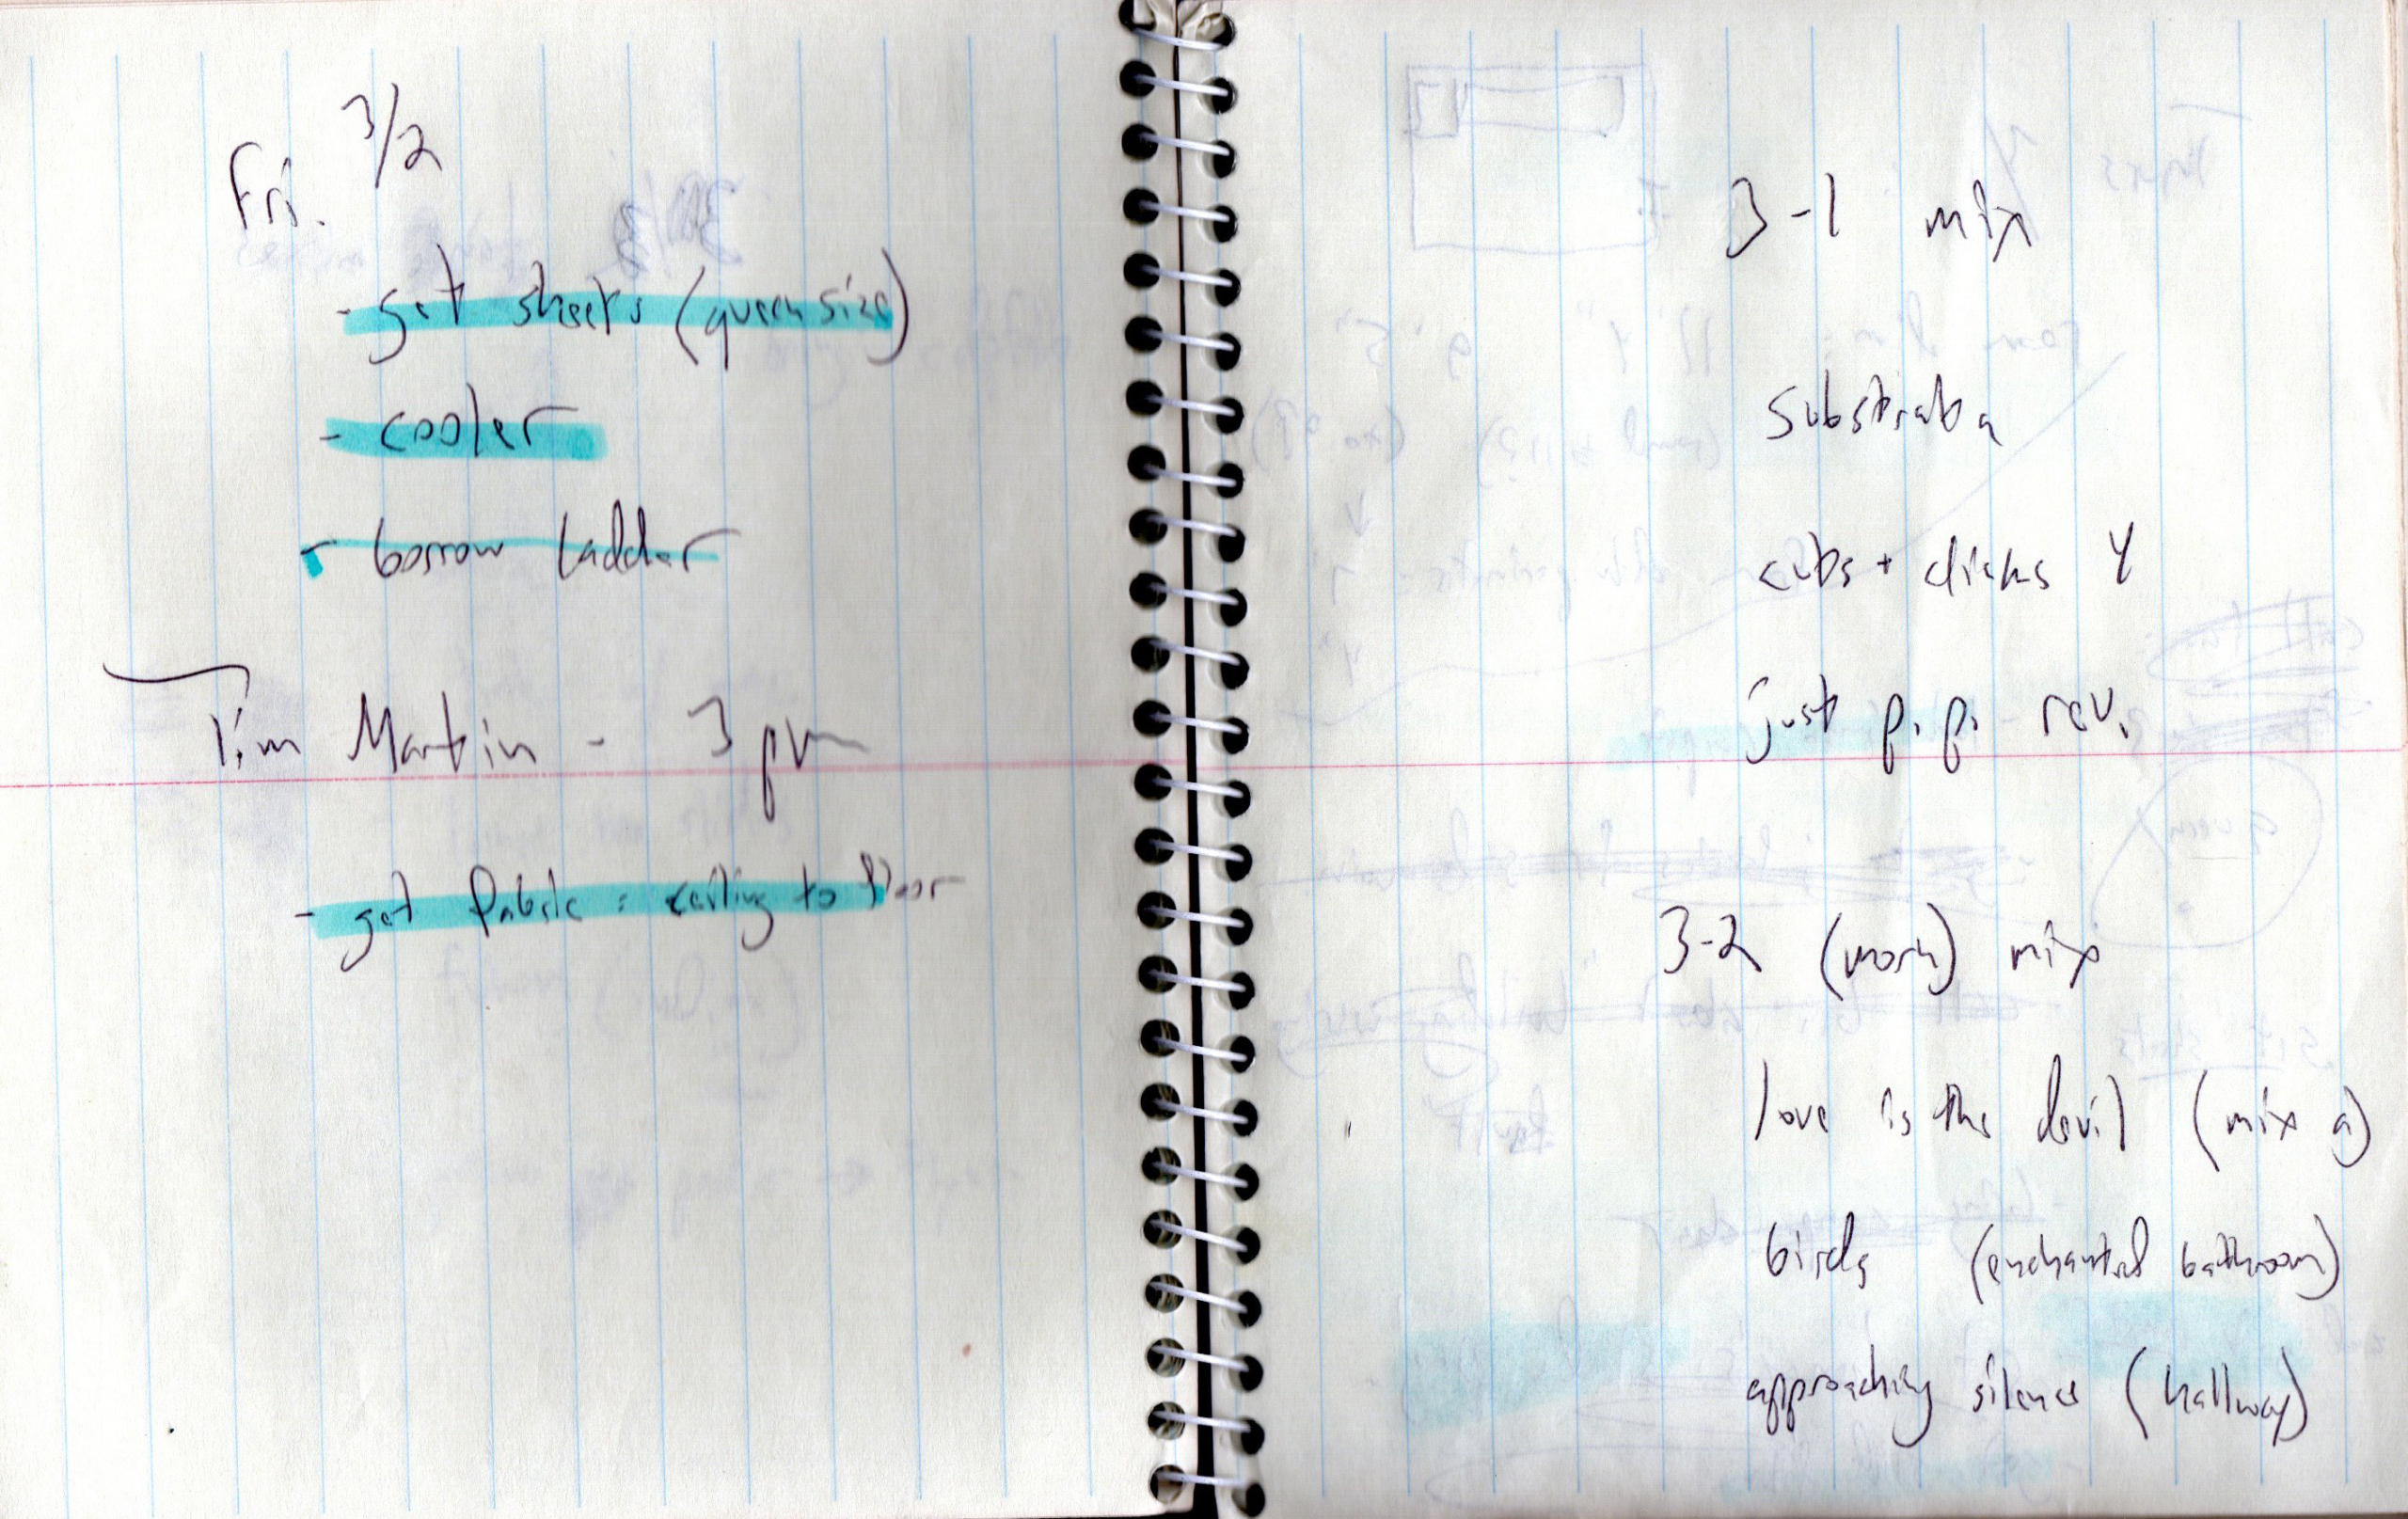 Fri. 3/2
- get sheets (queen size)
- cooler
- borrow ladder
Tim Martin - 3 pm
- get fabric : ceiling to floor
3-1 mix
substrata
cubs + clicks 4
just p.p. rev.
3-2 (work) mix
love is the devil (mix a)
birds (enchanted bathroom)
approaching silence (hallway)